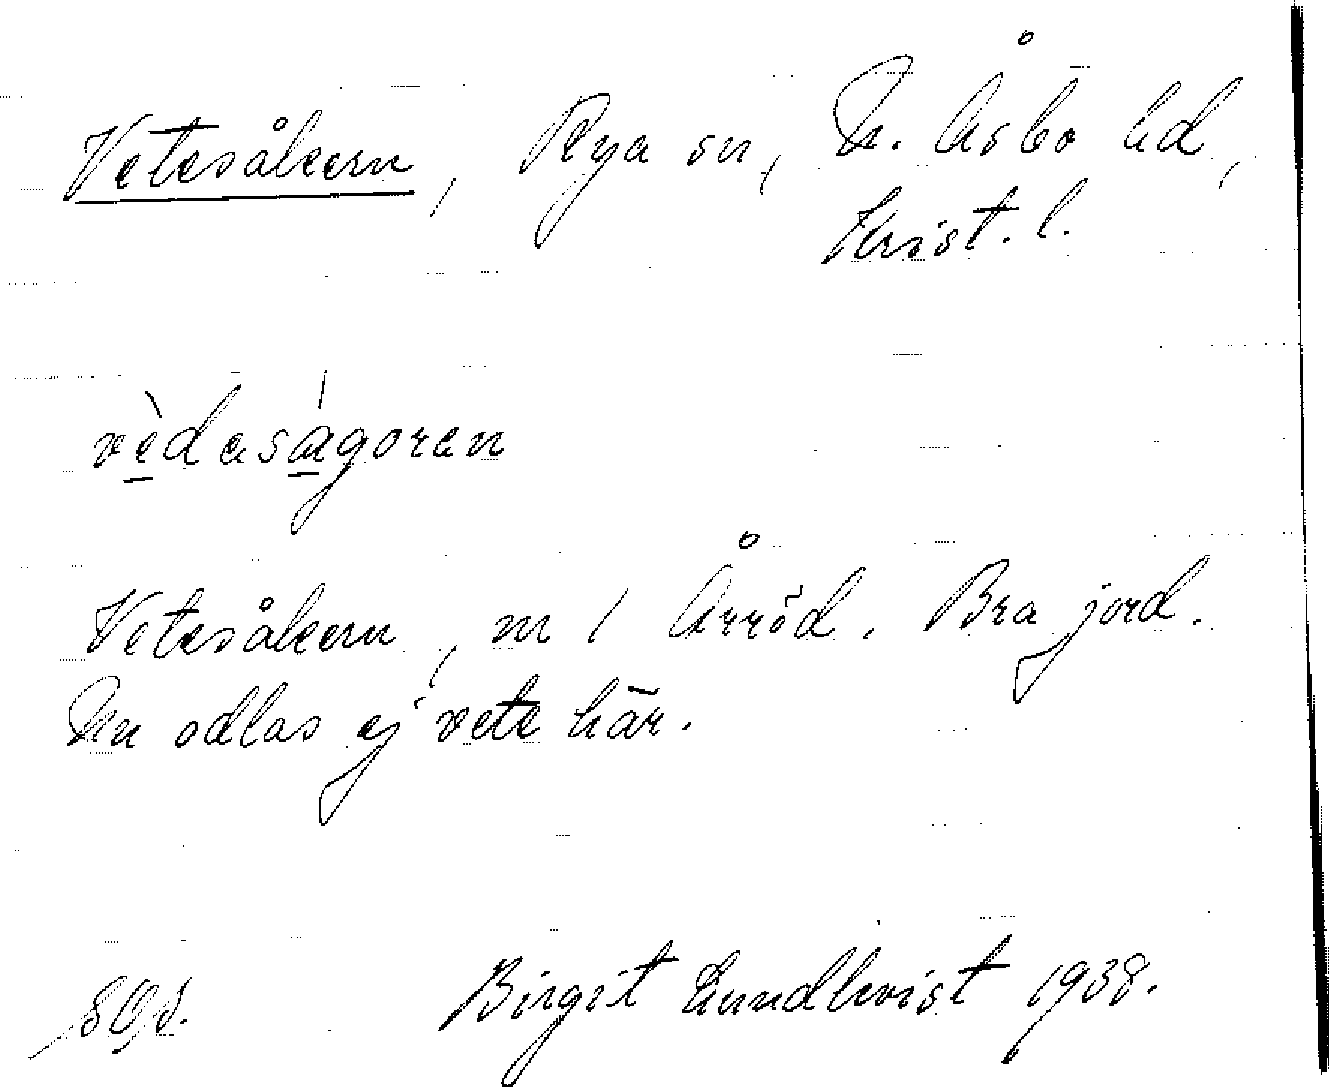 Vetesåkern, Rya sn, N. Åsbo hd,
Krist. l.
vèdaságoren
Vetesåkern, m 1 Årröd. Bra jord.
Nu odlas ej vete här.
Birgit Lundkvist 1938.